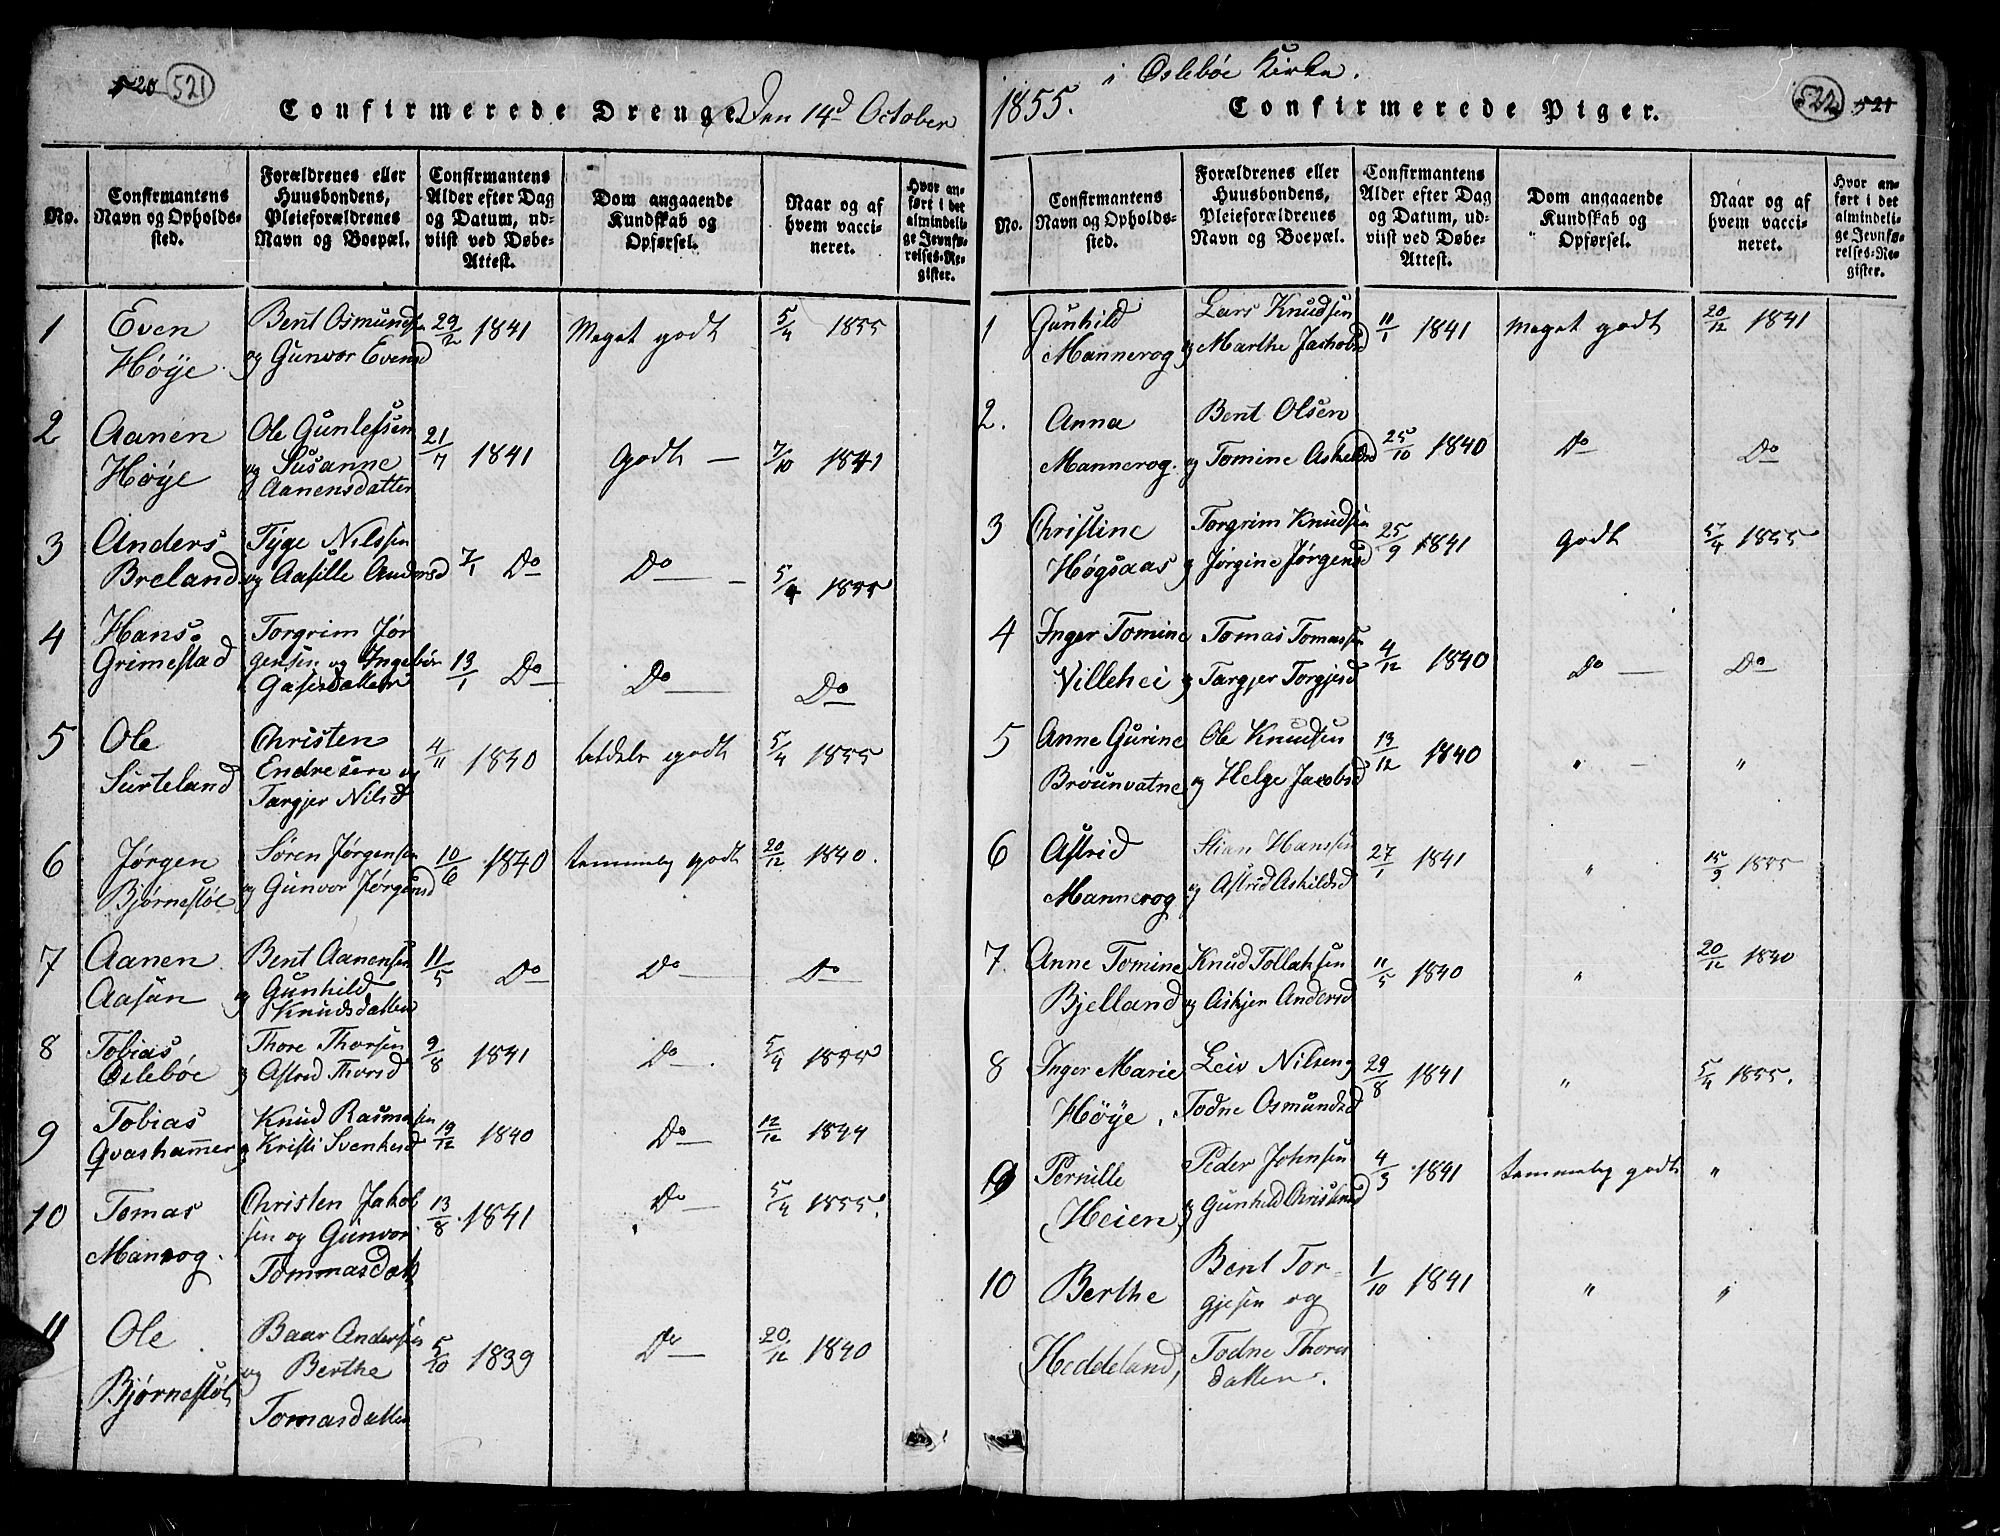 520 521
Confirmerede Drenge. Den 14d October
No.
Confirmantens
Navn og Opholds-
sted.
Forældrenes eller
Huusbondens,
Pleieforældrenes
Navn og Boepæl.
Confirmantens
Alder efter Dag
og Datum, ud-
viist ved Døbe-
Attest.
Dom angaaende
Kundskab og
Opførsel.
Naar og af
hvem vacci-
neret.
Hvor an-
ført i det
almindeli-
ge Jevnfø-
relses-Re-
gister.
1 Even Bent Osmunds 29/2 1841 Meget godt 5/4 1855
Høÿe og Gunvor Evensd
2 Aanen Ole Gunlefsen 21/7 1841 Godt — 7/10 1841
Høÿe og Susanne
Aanensdatter
3 Anders Tÿge Nilssen 7/1 Do Do — 5/4 1855
Breland og Aasille Andersd
4 Hans Torgrim Jør
Grimestad gensen og Ingebór 13/1 Do Do Do
5 Ole Christen 4/11 1840 godt 5/4 1855
Surteland Endresen og
Targjer Nilsd
6 Jørgen Søren Jørgensen 10/6 1840 temmelig godt 20/12 1840.
Bjørnestøl og Gunvor Jørgensd
7 Aanen Bent Aanensen 11/5 Do Do Do
Aasan og Gunhild
Knudsdatter
8 Tobias Thore Thorsen 9/8 1841 Do 5/4 1855
Oslebøe og Astrid Thorsd
9 Tobias Knud Rasmusen 19/12 1840 Do 12/12 1844
Qvashammer og Kristi Svenkesd
10 Tomas Christen Jakob 13/8 1841 Do 5/4 1855.
Manrog sen og Gunvor
Tommasdatt
11 Ole Baar Andersen 5/10 1839 Do 20/12 1840
Bjørnestøl og Berthe
Tomasdatter
1855. i Oslebøe Kirke.
Confirmerede Piger. 522 521
No.
Confirmantens
Navn og Opholds-
sted.
Forældrenes eller
Huusbondens,
Pleieforældrenes
Navn og Boepæl.
Confirmantens
Alder efter Dag
og Datum, ud-
viist ved Døbe-
Attest.
Dom angaaende
Kundskab og
Opførsel.
Naar og af
hvem vacci-
neret.
Hvor an-
ført i det
almindeli-
ge Jevnfø-
relses-Re-
gister.
1 Gunhild Lars Knudsen 11/1 1841 Meget godt 20/12 1841
Mannerog og Marthe Jachobsd
2. Anna Bent Olsen 25/10 1840 Do Do
Mannerog. og Tomine Askeldsd
3 Christine Torgrim Knudsen 25/9 1841 Godt 5/4 1855
Høgsaas og Jørgine Jørgensd
4 Inger Tomine Tomas Tomassen 4/12 1840 Do — Do
Villehei og Targjer Torgjesd
5 Anne Gurine Ole Knudsen 13/12 1840 " "
Brounvatne og Helge Jacobsd
6 Astrid Stian Hanssen 27/1 1841 " 15/9 1855
Mannerog og Astrid Askildsd
7. Anne Tomine Knud Tollaksen 11/5 1840 " 20/12 1840
Bjelland og Askjer Andersd
8 Inger Marie Leiv Nilsen og 29/8 1841 " 5/4 1855.
Høÿe Todne Osmundsd
9 Pernille Peder Johnsen 4/3 1841 temmelig godt "
Heien og Gunhild Christensd
10 Berthe Bent Tor- 1/10 1841 " "
gjesen og
Heddeland, Todne Thores
datter.